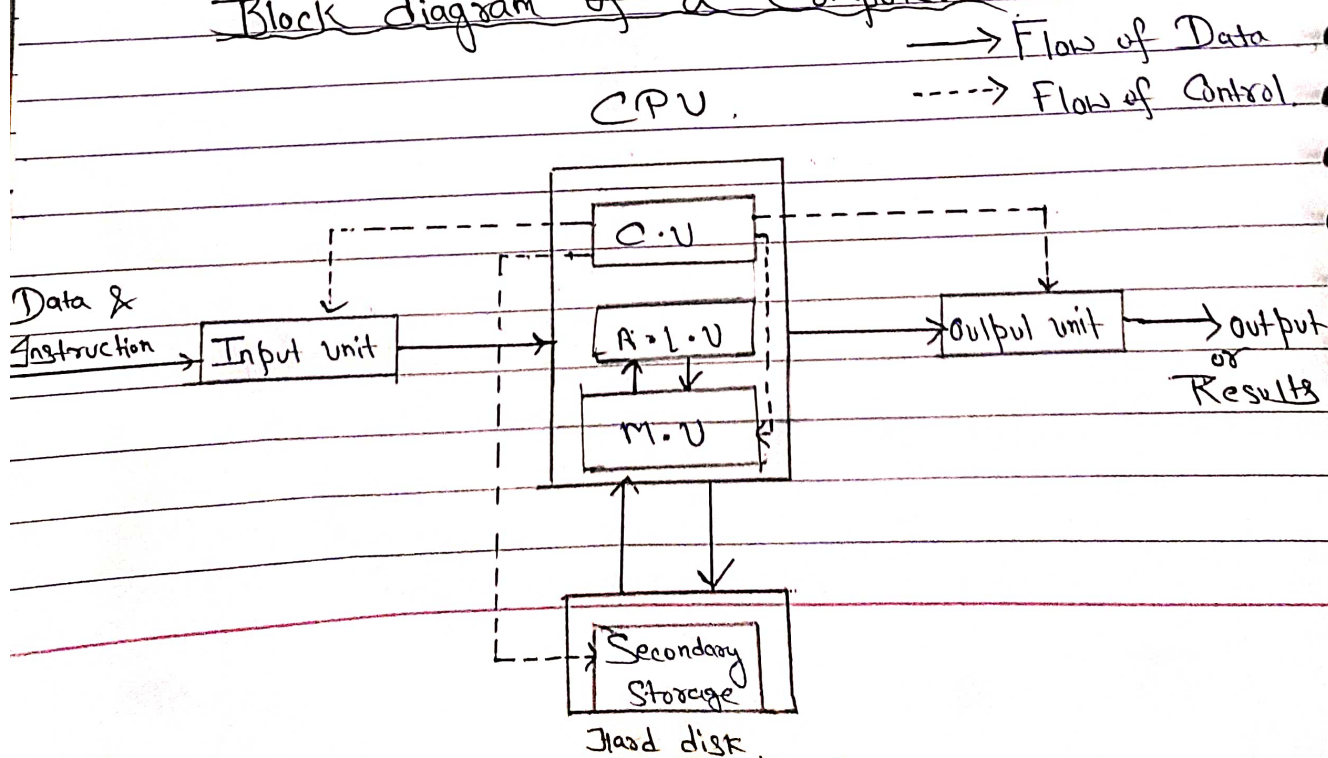 Block diagram of a Computer
Flow of Data
Flow of Control.
CPU.
C.U
Data &
Instruction
Input unit
A.L.U
M.U
Output unit
output
or
Results
Secondary
Storage
Hard disk.